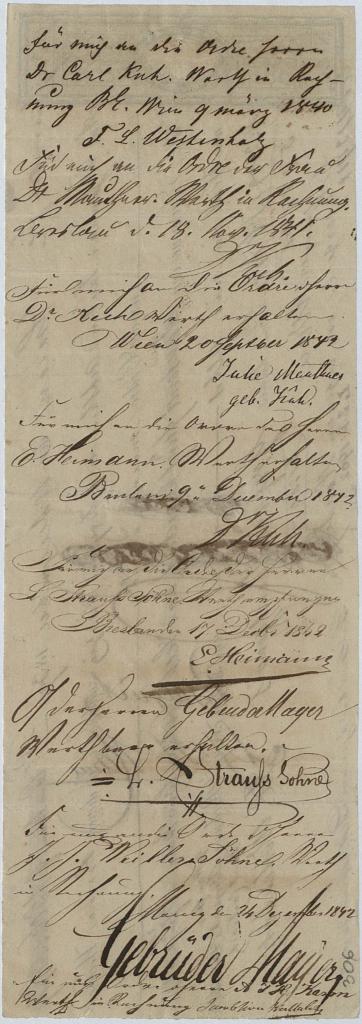 Für mich an die Ordre Herrn
Dr Carl Kuh. Werth in Rech-
nung Wien 9 märz 1840
F. L. Westenholz
Für mich an die Ordre der Frau
Dr Mauthner. Werth in Rechnung.
Breslau d. 18. 1841.
Kuh.
Für mich an die Ordre Herrn
Dr. Kuh Werth erhalten
Wien 20 September 1842
Julie Mauthner
geb. Kuh.
Für mich an die Ordre des Herrn
E. Heimann. Werth erhalten
Breslau 9 December 1842
Dr Kuh
Für mich an die Ordre der Herren
L Strauss Söhne Werth empfangen
Breslau den 17 Decbr 1842
E. Heimann
O/ der Herren Gebruder Mayer
Werth baar erhalten.
L. Strauss Sohne
Für uns an die Ordre d Herren
Söhne, Werth
in Rechnung
den 24 Dezember 1842
Gebrüder Mayer
Für uns Ordre
Werth in Rechnung
306